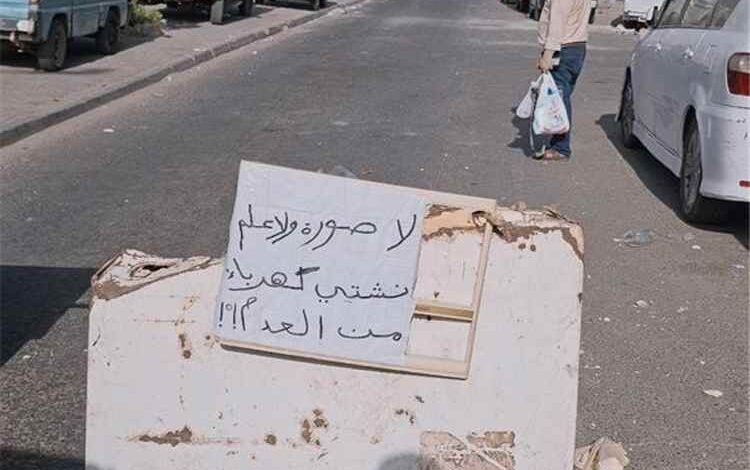 لا صورة ولا علم
نشتي كهرباء
من العدم!؟!